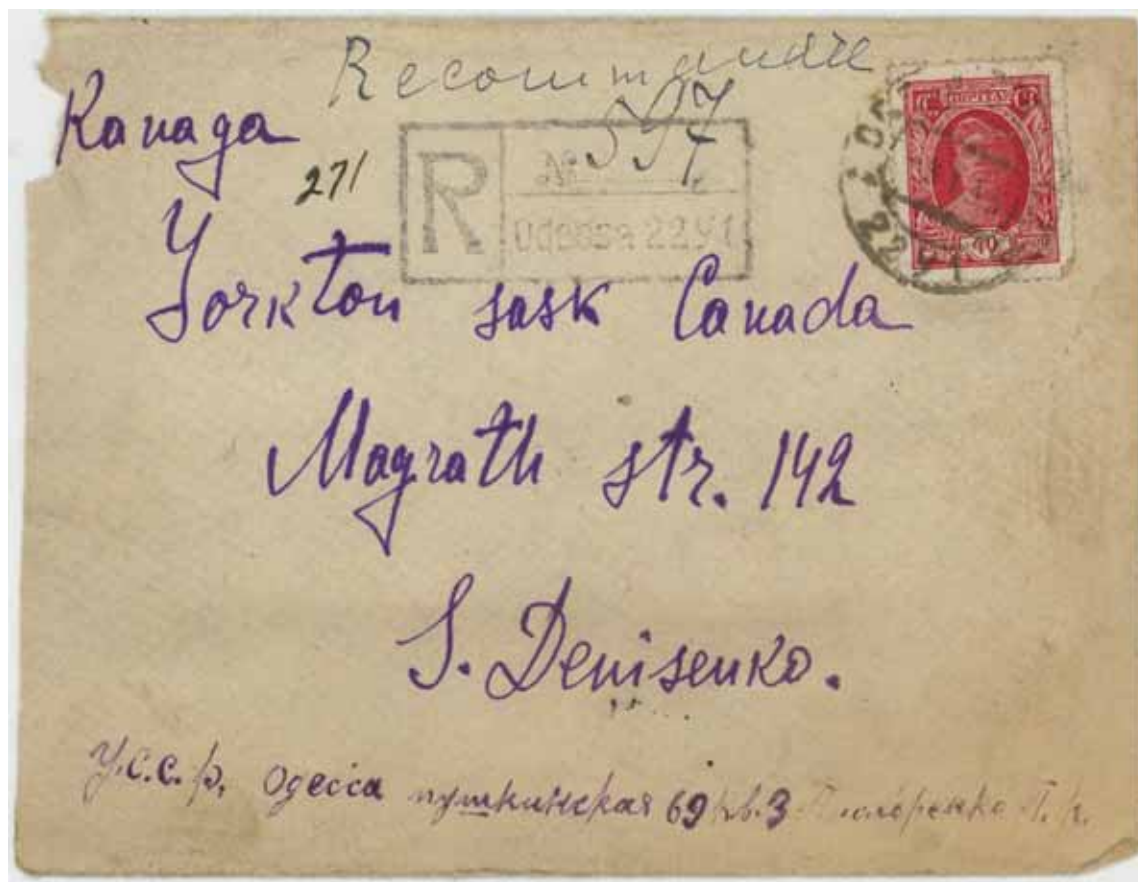 Recommandée
Канада
271
R
№ 597
Odessa 22.41
Yorkton sask Canada
Magrath str. 142
S. Denisenko.
У.С.С.р. Одесса пушкинская 69 кв. 3